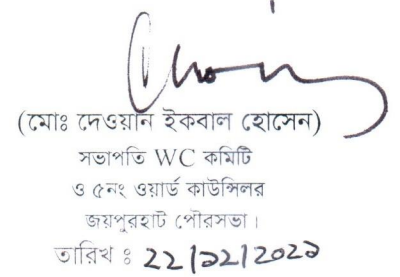 (মোঃ দেওয়ান ইকবাল হোসেন)
সভাপতি WC কমিটি
ও ৫নং ওয়ার্ড কাউন্সিলর
জয়পুরহাট পৌরসভা।
তারিখ ঃ ২২/১২/২০২১